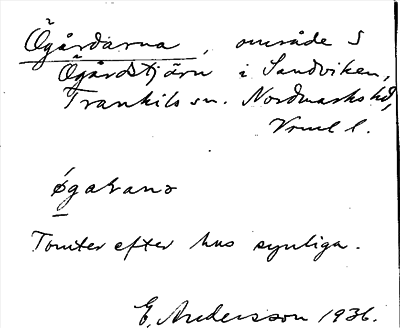 Ögårdarna, område S
Ögårdstjärn i Sandviken,
Trankils sn. Nordmarks hd,
Vrml l.
øgaɼana
Tomter efter hus synliga.
E. Andersson 1936.